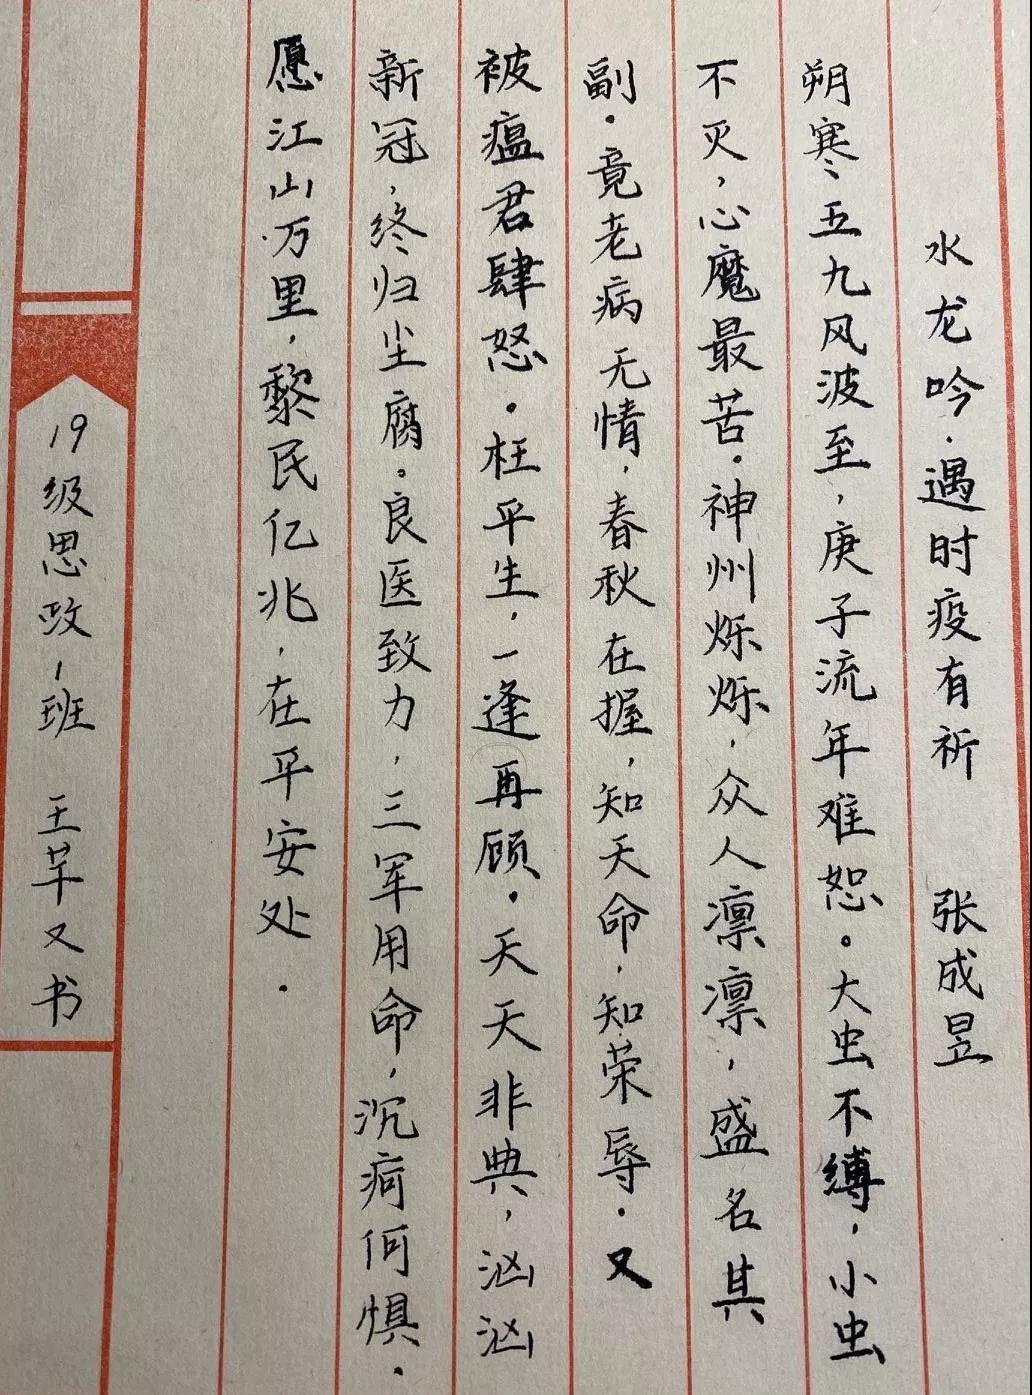 水龙吟·遇时疫有祈 张成昱
朔寒、五九风波至,庚子流年难恕。大虫不缚,小虫
不灭,心魔最苦。神州烁烁,众人凛凛,盛名其
副。竟老病无情,春秋在握,知天命,知荣辱。又
被瘟君肆怒。枉平生,一逢再顾。天天非典,汹汹
新冠,终归尘腐。良医致力,三军用命,沉疴何惧。
愿江山万里,黎民亿兆,在平安处。
19级思政1班 王芊又书